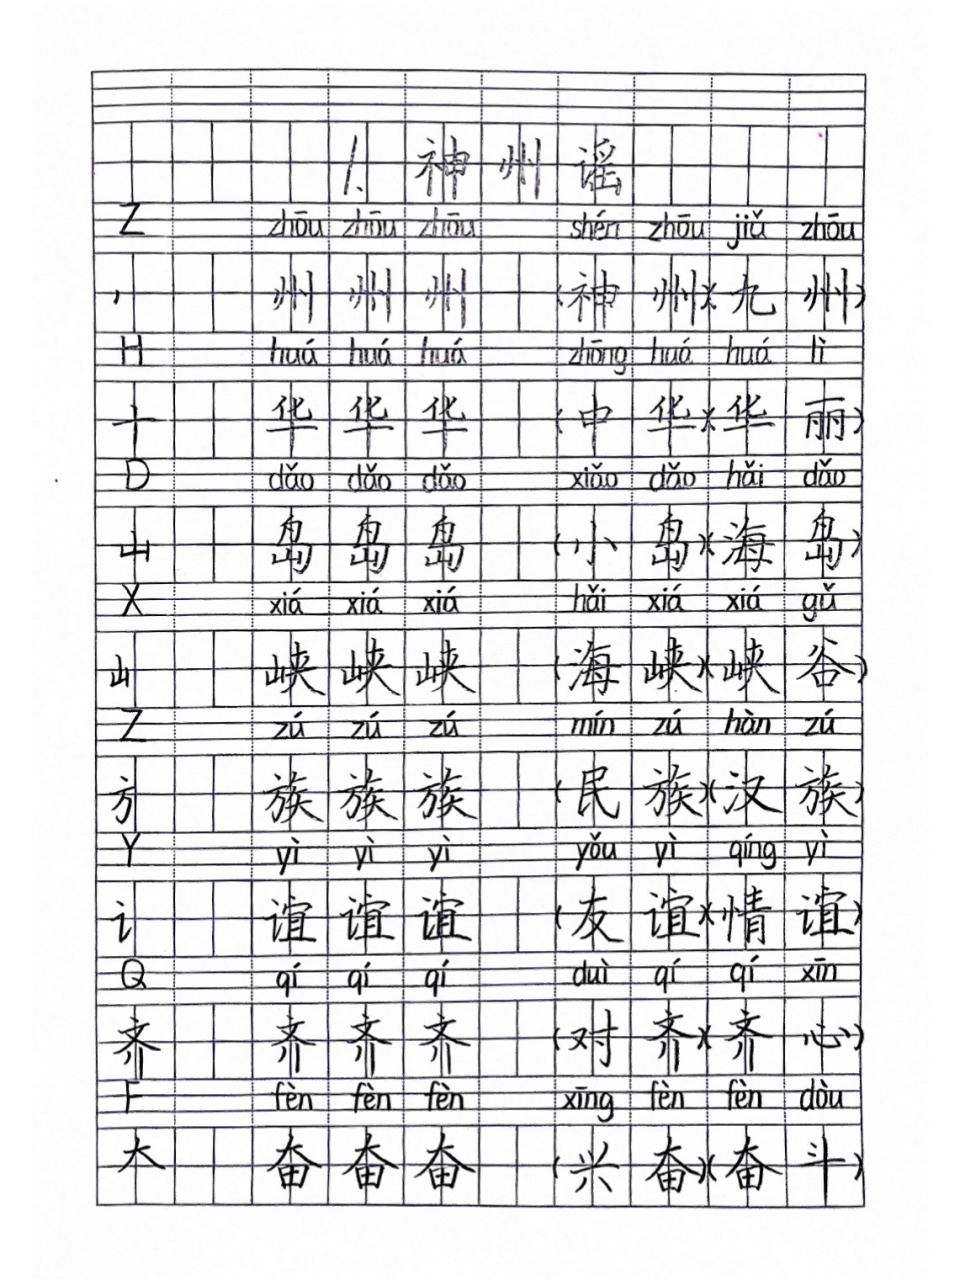 1. 神州谣
Z zhōu zhōu zhōu shén zhōu jiǔ zhōu
丶 州 州 州 (神州)(九州)
H huá huá huá zhōng huá huá lì
十 华 华 华 (中华)(华丽)
D dǎo dǎo dǎo xiǎo dǎo hǎi dǎo
山 岛 岛 岛 (小岛)(海岛)
X xiá xiá xiá hǎi xiá xiá gǔ
山 峡 峡 峡 (海峡)(峡谷)
Z zú zú zú mín zú hàn zú
方 族 族 族 (民族)(汉族)
Y yì yì yì yǒu yì qíng yì
讠 谊 谊 谊 (友谊)(情谊)
Q qí qí qí duì qí qí xīn
齐 齐 齐 齐 (对齐)(齐心)
F fèn fèn fèn xīng fèn fèn dòu
大 奋 奋 奋 (兴奋)(奋斗)